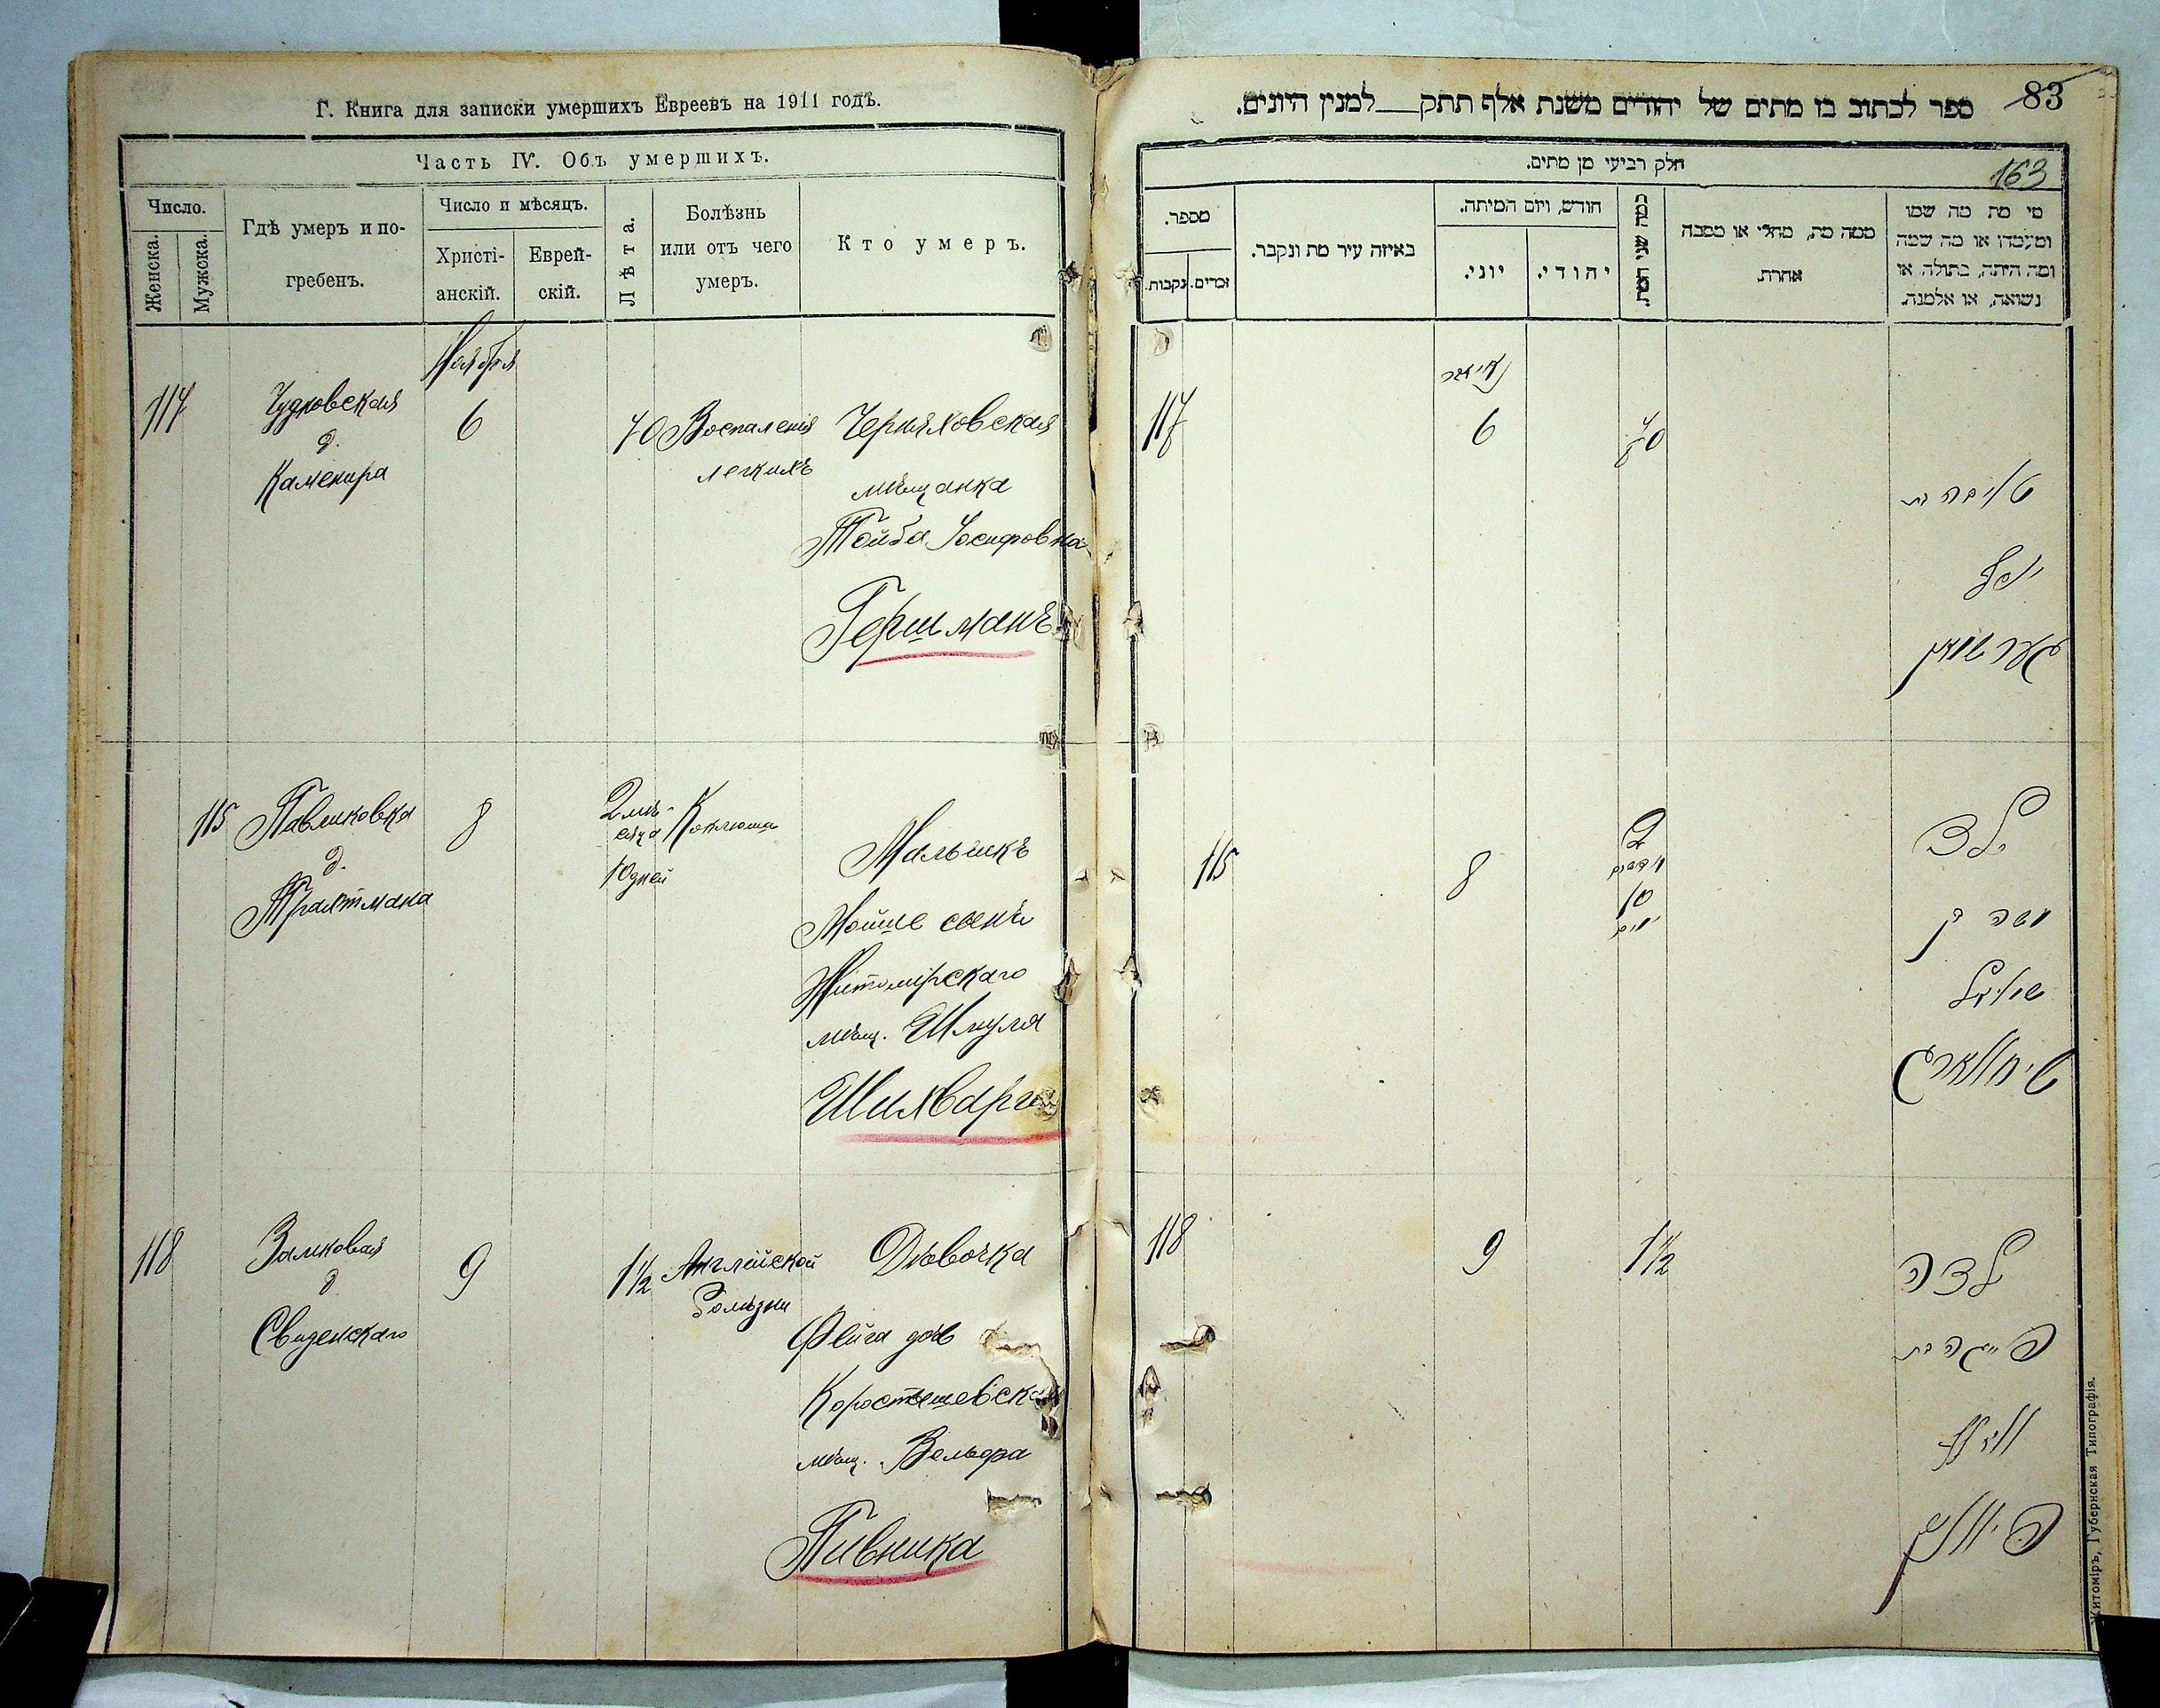 Г. Книга для записки умершихъ Евреевъ на 1911 годъ.
Часть IV. Объ умершихъ.
Число.
Женска.
Мужска.
Гдѣ умеръ и по-
гребенъ.
Число и мѣсяцъ.
Христі-
анскій.
Еврей-
скій.
Лѣта.
Болѣзнь
или отъ чего
умеръ.
Кто умеръ.
Ноября
117
Чудновская
д.
Каменира
6
70
Воспаленія
легкихъ
Черняховская
мѣщанка
Тойба Іосифовна
Гершманъ
115
Павликовка
д.
Трахтмана
8
2 мѣ-
сяца
10 дней
Коклюша
Мальчикъ
Мойше сынъ
Житомірскаго
мѣщ. Шмуля
Шихварга
118
Замковая
д
Свиденскаго
9
1 1/2
Англійской
болѣзни
Дѣвочка
Фейга дочь
Коростышевск
мѣщ. Вольфа
Пивника
ספר לכתוב בו מתים של יהודים משנת אלף תתק למנין היונים.
83
חלק רביעי מן מתים.
163
מספר.
נקבות.
זכרים.
באיזה עיר מת ונקבר.
חודש, ויום המיתה.
יוני.
יהודי.
כמה שני המת.
ממה מת, מחלי או מסבה
אחרת.
מי מת מה שמו
ומעמדו או מה שמה
ומה היתה, בתולה או
נשואה, או אלמנה.
117
6
70
טויבה בת
יוסף
גערשמאן
115
8
2
חדשים
10
יום
ילד
משה בן
שמואל
שיחווארג
118
9
1 1/2
ילדה
פייגה בת
וואלף
פיווניק
Житоміръ, Губернская Типографія.